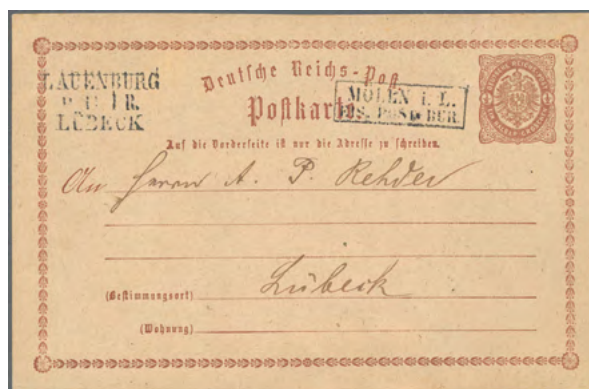 LAUENBURG
LÜBECK
Deutsche Reichs-Post
MÖLLN i. L.
EIS. POST BUR.
Postkarte
Auf die Vorderseite ist nur die Adresse zu schreiben.
An Herrn A. P. Rehder
Lübeck
(Bestimmungsort)
(Wohnung)